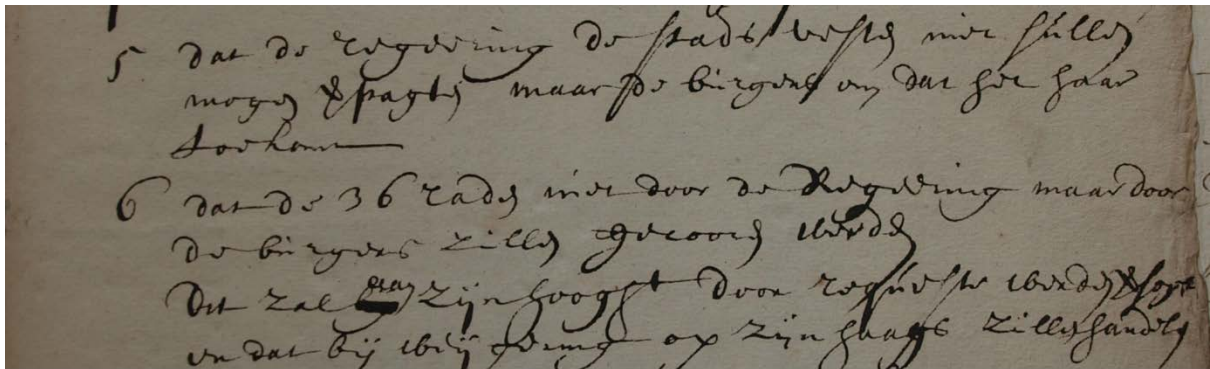 5 dat de regeering de stads vesten niet sullen
mogen verpagten maar de burgers om dat het haar
toekomt
6 dat de 36 raden niet door de Regeering maar door
de burgers zullen gecooren werden
Dit zal aan zijn hooght door requeste werden versogt
en dat bij weijgering op zijn haags zullen handelen